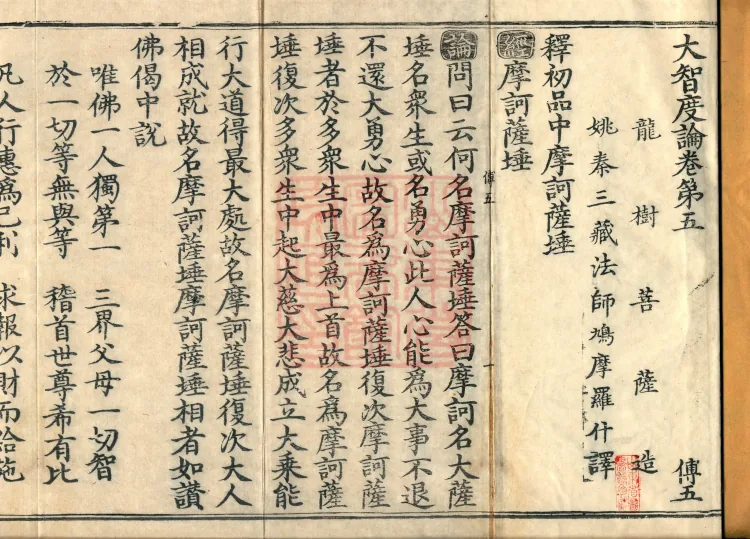 大智度論卷第五 傅五
龍樹菩薩造
姚秦三藏法師鳩摩羅什譯
釋初品中摩訶薩埵
經摩訶薩埵
傅五 一
論問曰云何名摩訶薩埵答曰摩訶名大薩
埵名衆生或名勇心此人心能爲大事不退
不還大勇心故名爲摩訶薩埵復次摩訶薩
埵者於多衆生中最爲上首故名爲摩訶薩
埵復次多衆生中起大慈大悲成立大乘能
行大道得最大處故名摩訶薩埵復次大人
相成就故名摩訶薩埵摩訶薩埵相者如讚
佛偈中說
唯佛一人獨第一 三界父母一切智
於一切等無與等 稽首世尊希有比
凡人行惠爲己利 求報以財而給施